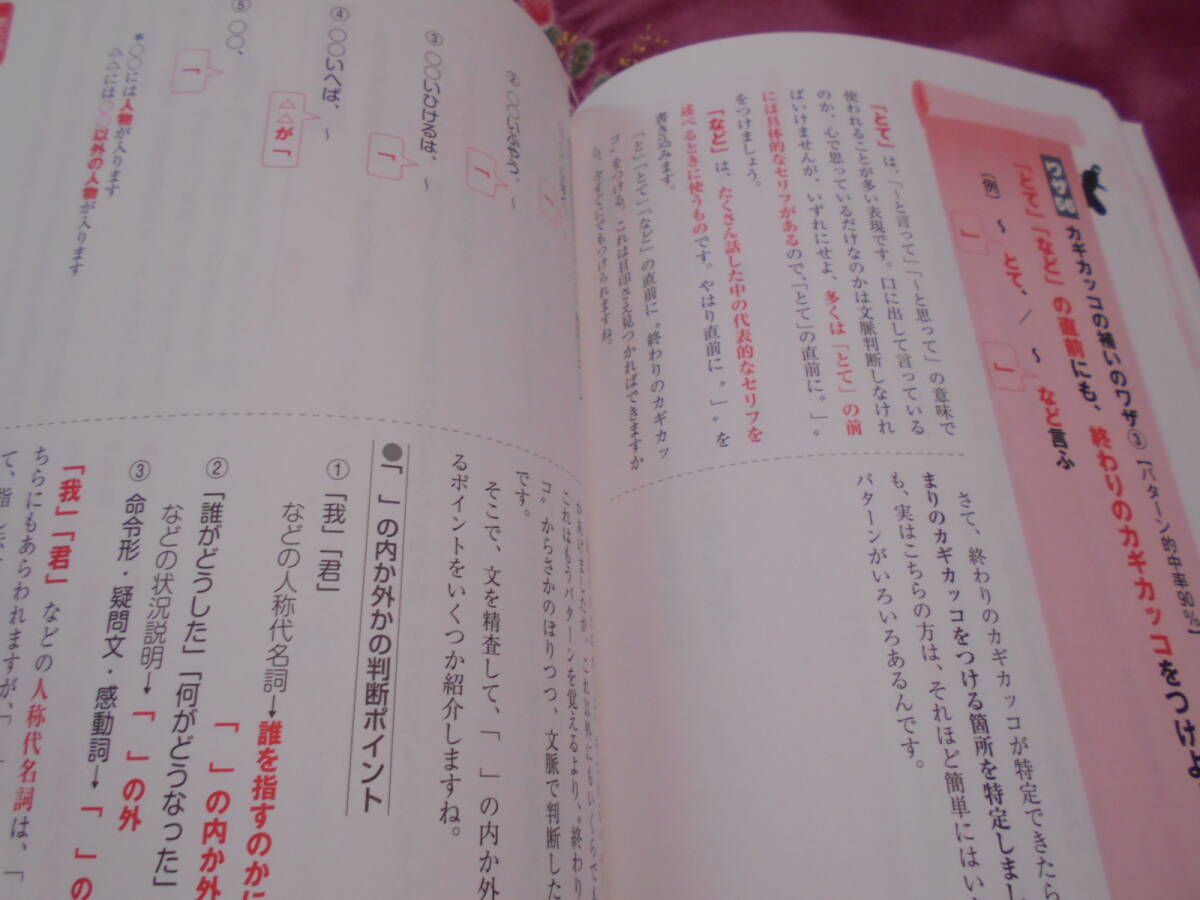 ワザ56 カギカッコの補いのワザ③【パターン的中率90%】
「とて」「など」の直前にも、終わりのカギカッコをつけよ
(例) 〜 とて、／ 〜 など言ふ
」
」
「とて」は、「〜と言って」「〜と思って」の意味で
使われることが多い表現です。口に出して言っている
のか、心で思っているだけなのかは文脈判断しなけれ
ばいけませんが、いずれにせよ、多くは「とて」の前
には具体的なセリフがあるので、「とて」の直前に〝」〟
をつけましょう。
「など」は、たくさん話した中の代表的なセリフを
述べるときに使うものです。やはり直前に〝」〟を
書き込みます。
「と」「とて」「など」の直前に〝終わりのカギカッ
コ〟をつける。これは目印さえ見つかればできますか
ら、今すぐにでもつけられますね。
さて、終わりのカギカッコが特定できたら
まりのカギカッコをつける箇所を特定しまし
も、実はこちらの方は、それほど簡単にはい
パターンがいろいろあるんです。
② 〇〇いふやう、〜
「
③ 〇〇いひけるは、〜
「
④ 〇〇いへば、〜
△△が「
⑤ 〇〇、
「
＊〇〇には人物が入ります
△△には〇〇以外の人物が入ります
これはもうパターンを覚えるより、〝終わり
コ〟からさかのぼりつつ、文脈で判断した
です。
そこで、文を精査して、「 」の内か外
るポイントをいくつか紹介しますね。
●「 」の内か外かの判断ポイント
①「我」「君」
などの人称代名詞→誰を指すのかに
②「誰がどうした」「何がどうなった」
などの状況説明→「 」の内か外
「 」の外
③ 命令形・疑問文・感動詞→「 」の
「我」「君」などの人称代名詞は、「
ちらにもあらわれますが、「